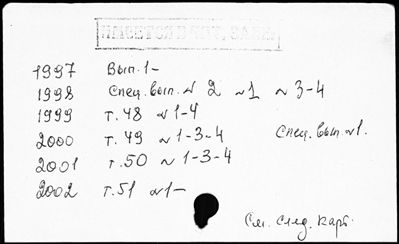 1997 Вып. 1-
1998 Спец. вып. № 2 № 1 № 3-4
1999 т. 48 № 1-4
2000 т. 49 № 1-3-4 Спец. вып. №1.
2001 т. 50 № 1-3-4
2002 т. 51 №1-
См. след. карт.